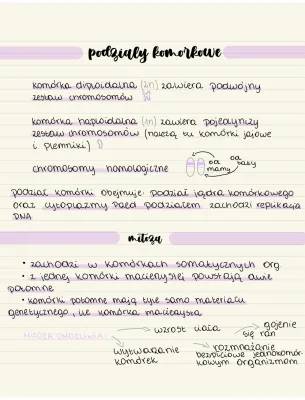 podziały komórkowe
komórka diploidalna (2n) zawiera podwójny
zestaw chromosomów
komórka haploidalna (1n) zawiera pojedynczy
zestaw chromosomów (należą tu komórki jajowe
i plemniki)
chromosomy homologiczne
od mamy
od taty
podział komórki obejmuje podział jądra komórkowego
oraz cytoplazmy przed podziałem zachodzi replikacja
DNA
mitoza
• zachodzi w komórkach somatycznych org.
• z jednej komórki macierzystej powstają dwie
potomne
• komórki potomne mają tyle samo materiału
genetycznego, ile komórka macierzysta
MITOZA UMOŻLIWIA:
wzrost ciała
gojenie
się ran
wytwarzanie
komórek
rozmnażanie
bezpłciowe jednokomór-
kowym organizmom